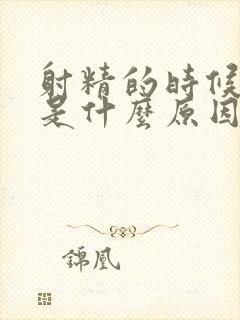 射精的時候
是什麼原因
錦凰